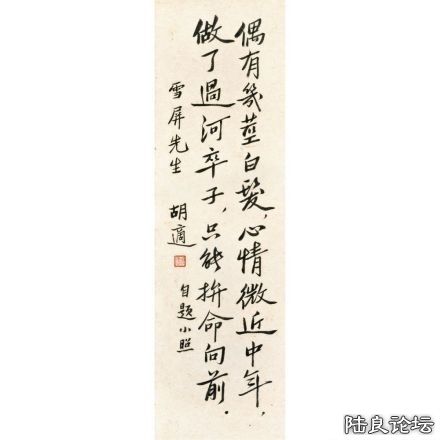 偶有幾莖白髮，心情微近中年，
做了過河卒子，只能拚命向前．
雪屏先生
胡適
自題小照
陆良论坛